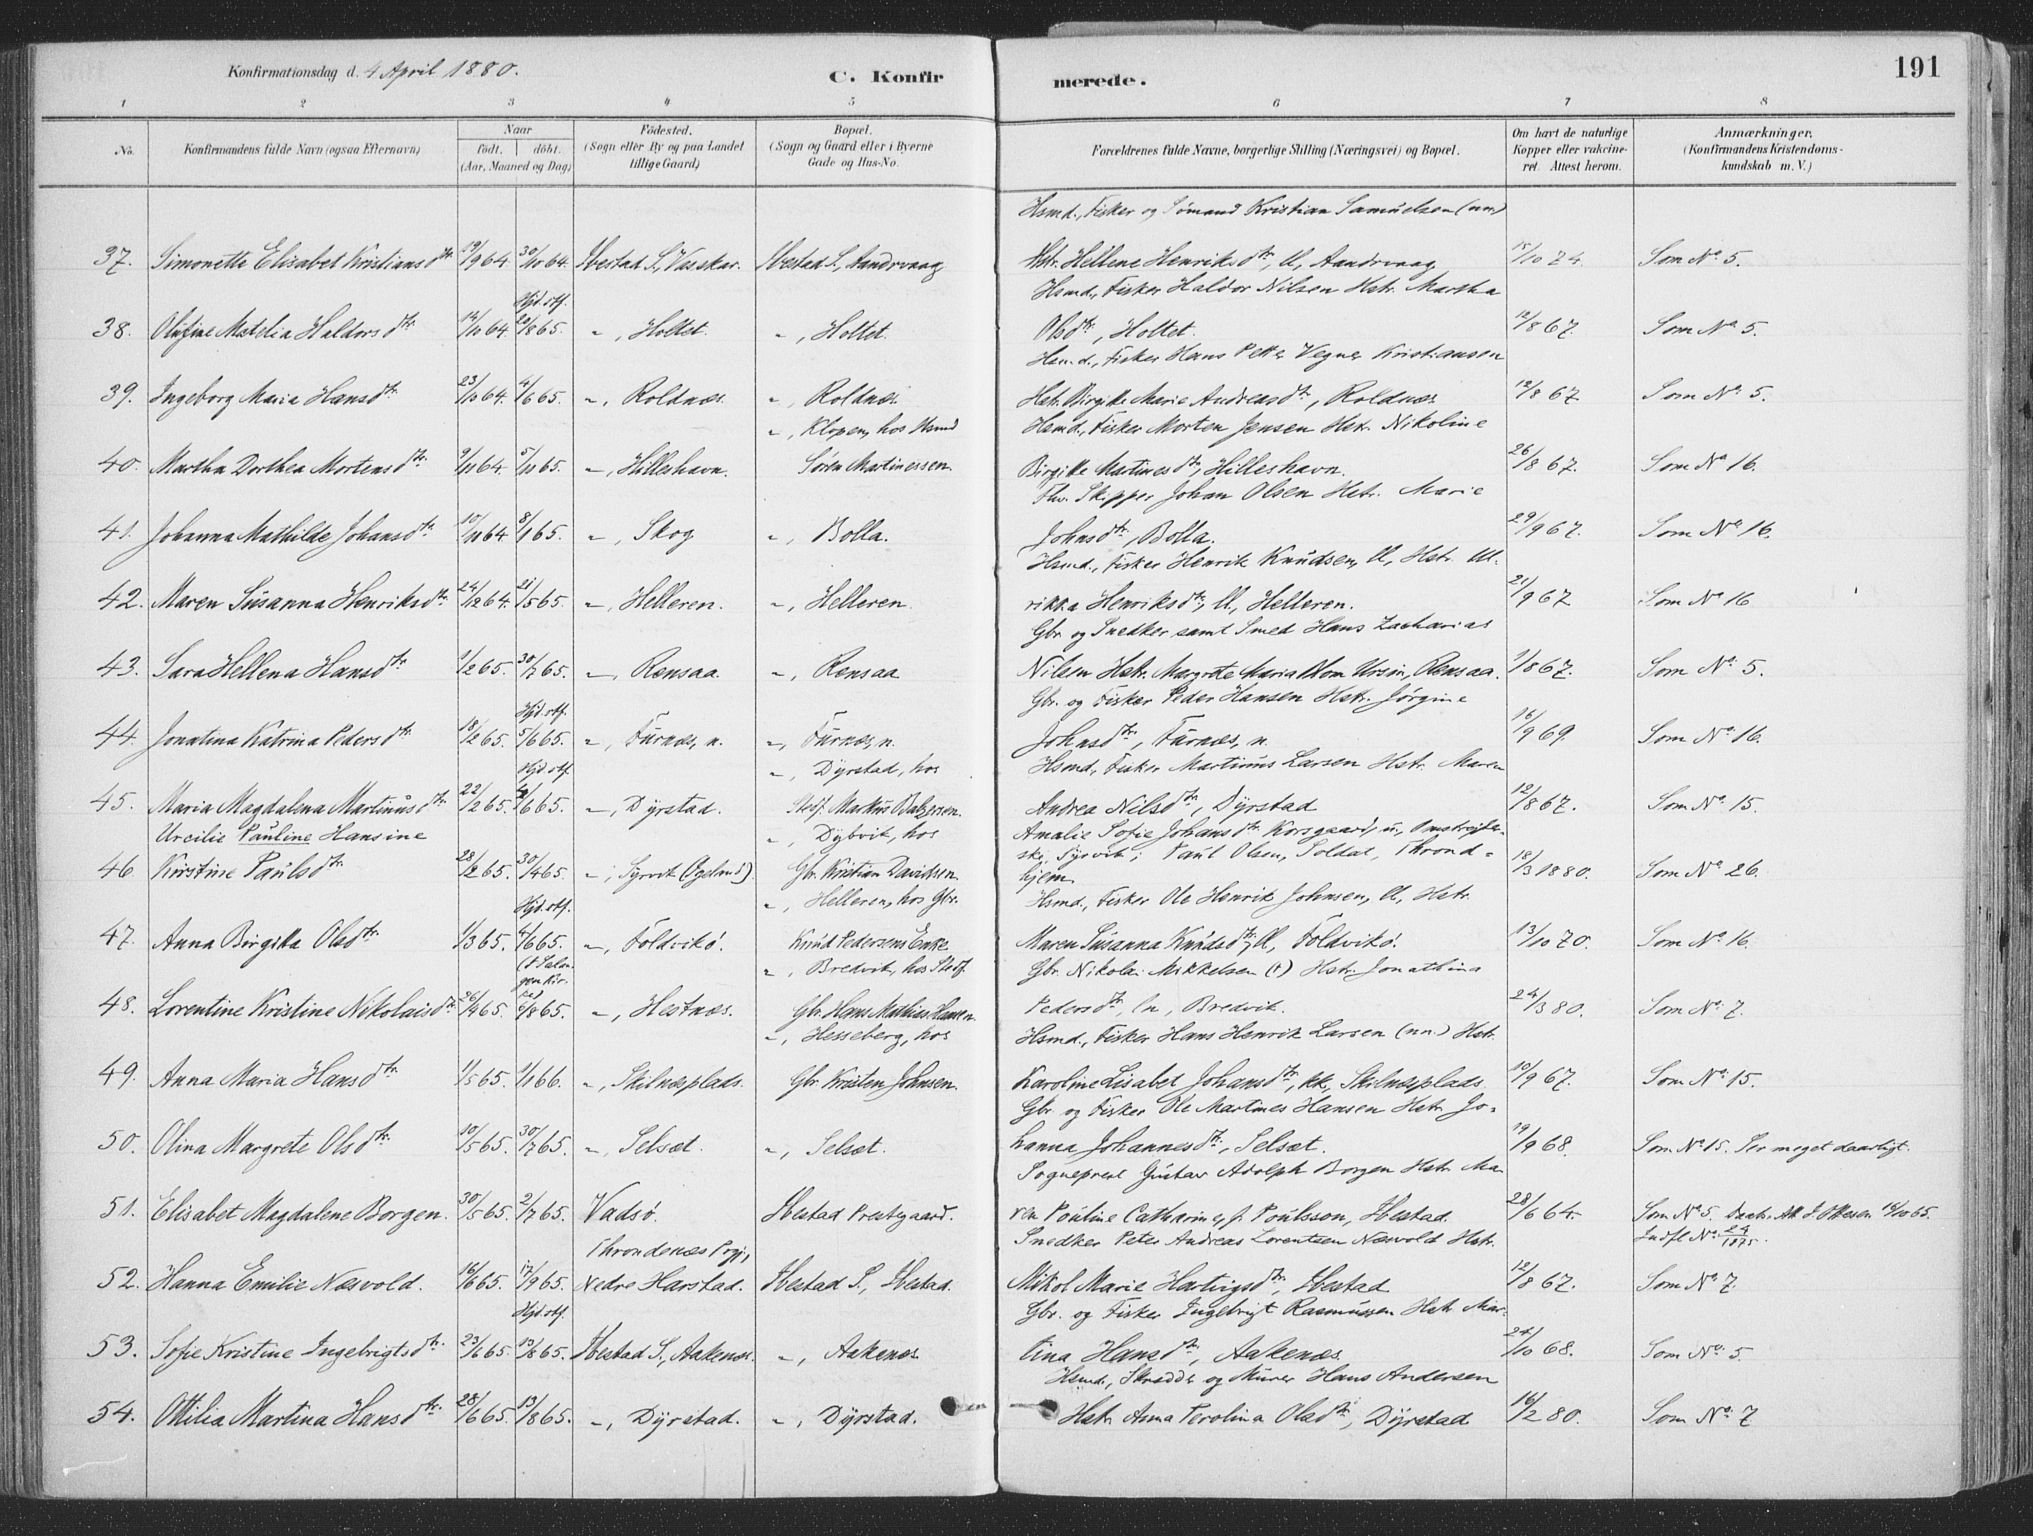 191
Konfirmationsdag d. 4 April 1880.
C. Konfirmerede.
1 2 3 4 5 6 7 8
No.
Konfirmandens fulde Navn (ogsaa Efternavn)
Naar
født. døbt.
(Aar, Maaned og Dag)
Fødested.
(Sogn eller By og paa Landet
tillige Gaard)
Bopæl.
(Sogn og Gaard eller i Byerne
Gade og Hus-No.
Forældrenes fulde Navne, borgerlige Stilling (Næringsvei) og Bopæl.
Om havt de naturlige
Kopper eller vakcine-
ret. Attest herom.
Anmærkninger.
(Konfirmandens Kristendoms-
kundskab m. V.)
Hsmd., Fisker og Sømand Kristian Samuelsen (nn)
37. Simonette Elisabet Kristiansdtr. 19/9 64 30/10 64. Ibestad S., Vasskar. Ibestad S., Aandrvaag Hstr. Hellene Henriksdtr., ll, Aandrvaag 15/10 74. Som No 5.
Hjd. stf. Hsmd., Fisker Haldor Nilsen Hstr. Martha
38. Olufine Metelia Haldorsdtr. 12/10 64. 20/8 65. „, Holtet. „, Holtet. Olsdtr., Holtet. 12/8 67. Som No 5.
Hsmd., Fisker Hans Petter Vegner Kristiansen
39. Ingeborg Maria Hansdtr. 23/10 64. 4/6 65. „, Roldnæs. „, Roldnæs. Hstr. Birgitte Marie Andreasdtr., Roldnæs. 12/8 67 Som No 5.
„, Klopen, hos Hsmd Hsmd., Fisker Morten Jensen Hstr. Nikoline
40. Martha Dorthea Mortensdtr. 9/11 64. 5/11 65. „, Hilleshavn. Søren Martinessen. Birgitte Martinesdtr., Hilleshavn. 26/8 67. Som No 16.
Fhv. Skipper Johan Olsen Hstr. Marie
41. Johanna Mathilde Johansdtr. 10/11 64. 8/1 65. „, Skog „, Bolla. Johnsdtr., Bolla. 29/9 67. Som No 16.
Hsmd., Fisker Henrik Knudsen, ll, Hstr. Ul-
42. Maren Susanna Henriksdtr. 24/12 64. 21/5 65. „, Helleren. „, Helleren. rikka Henriksdtr., ll., Helleren. 21/9 67 Som No 16
Gbr. og Snedker samt Smed Hans Zacharias
43. Sara Hellena Hansdtr. 1/2 65. 30/7 65. „, Rensaa. „, Rensaa Nilsen Hstr. Margrete Maria Blom Ursin, Rensaa. 1/8 67. Som No 5.
Hjd. stf. Gbr. og Fisker Peder Hansen Hstr. Jørgine
44. Jonatina Katrina Pedersdtr. 18/2 65. 5/6 65. „, Furnæs, n. „, Furnæs, n. Johnsdtr., Furnæs, n. 16/9 69. Som No 16.
Hjd. stf. „, Dyrstad, hos Hsmd., Fisker Martinus Larsen Hstr. Maren
45. Maria Magdalena Martinusdtr. 22/2 65. /6 65. „, Dyrstad. Stedf. Markus Balzersen. Andrea Nilsdtr., Dyrstad 12/8 67. Som No 15.
Urcilie Pauline Hansine „, Dybvik, hos Amalie Sofie Johansdtr. Korsgaard, u.,
46 Kirstine Paulsdtr. 28/2 65. 30/4 65. „, Syrvik (Øgeland). Gbr. Kristian Davidsen. Syrvik; Paul Olsen, Soldat, Thrond- 18/3 1880. Som No 26.
hjem.
Hjd. stf. „, Helleren, hos Gbr. Hsmd., Fisker Ole Henrik Johnsen, ll, Hstr.
47. Anna Birgitta Olsdtr. 1/3 65. 4/6 65. „, Foldvikø. Knud Pedersens Enke. Maren Susanna Knudsdtr., ll, Foldvikø. 13/10 70. Som No 16.
(i Salan- gen kir- ke) „, Bredvik, hos Stedf. Gbr. Nikolai Mikkelsen (†) Hstr. Jonathina
48. Lorentine Kristine Nikolaisdtr. 26/4 65. 6/8 65. „, Hestnæs. Gbr. Hans Mathias Hansen. Pedersdtr., ln, Bredvik. 24/3 80. Som No 7.
„, Hesseberg, hos Hsmd., Fisker Hans Henrik Larsen (nn.) Hstr.
49. Anna Maria Hansdtr. 1/5 65. 1/1 66. „, Skilnæsplads. Gbr. Kristen Johnsen. Karoline Lisabet Johansdtr., kk., Skilnæsplads. 10/9 67. Som No 15.
Gbr. og Fisker Ole Martines Hansen Hstr. Jo-
50. Olina Margrete Olsdtr. 10/5 65. 30/7 65. „, Selsæt. „, Selsæt. hanna Johannesdtr., Selsæt. 19/9 68. Som No 15. Ser meget daarligt.
Sogneprest Gustav Adolph Borgen Hstr. Ma-
51. Elisabet Magdalene Borgen. 30/5 65. 2/7 65. Vadsø. Ibestad Prestgaard. ren Pouline Catharine, f. Poulsson, Ibestad. 28/6 64. Som No 5. Daabs Att. Ottesen 16/10 65.
Indfl. No 24/1875.
Throndenæs Prgj., Snedker Peter Andreas Lorentzen Næsvold Hstr.
52. Hanna Emilie Næsvold. 16/6 65. 17/9 65. Nedre Harstad. Ibestad S., Ibestad. Mikol Marie Hartvigsdtr., Ibestad 12/8 67. Som No 7.
Hjd. stf. Gbr. og Fisker Ingebrigt Rasmussen Hstr. Mar-
53. Sofie Kristine Ingebrigtsdtr. 23/6 65. 13/8 65. Ibestad S., Aakenæs. „, Aakenæs tina Hansdtr., Aakenæs. 24/10 68. Som No 5.
Hsmd., Skrædder og Murer Hans Andersen
54. Ottilia Martina Hansdtr. 28/6 65. 13/8 65. „, Dyrstad. „, Dyrstad. Hstr. Anna Perolina Olsdtr., Dyrstad 16/2 80. Som No 7